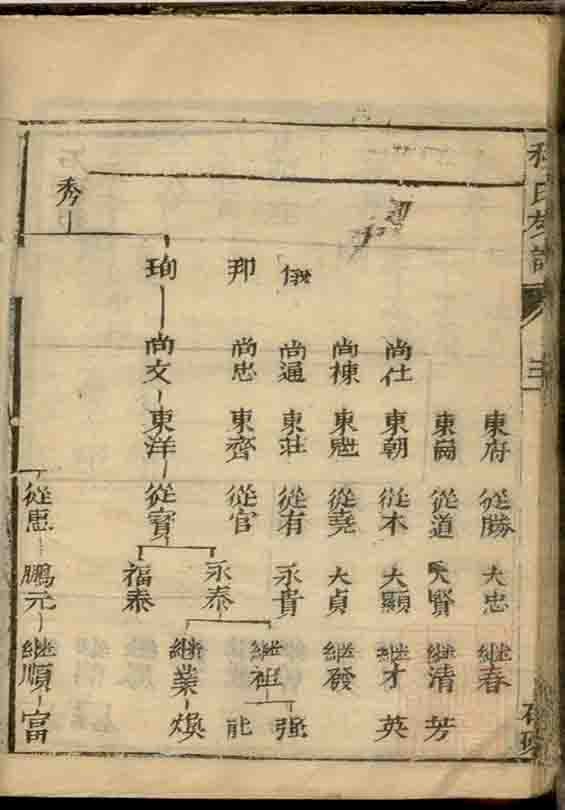 氏
三
東府
從勝
大忠
継春
東崗
從道
大賢
継清
芳
尚仕
東朝
從木
大顯
継才
英
尚棟
東魁
從堯
大貞
継發
俄
尚通
東莊
從有
永貴
強
邦
尚忠
東齊
從官
永泰
継祖
能
珣
尚文
東洋
從寳
福泰
継業
煥
秀
從惠
鵬元
継順
富